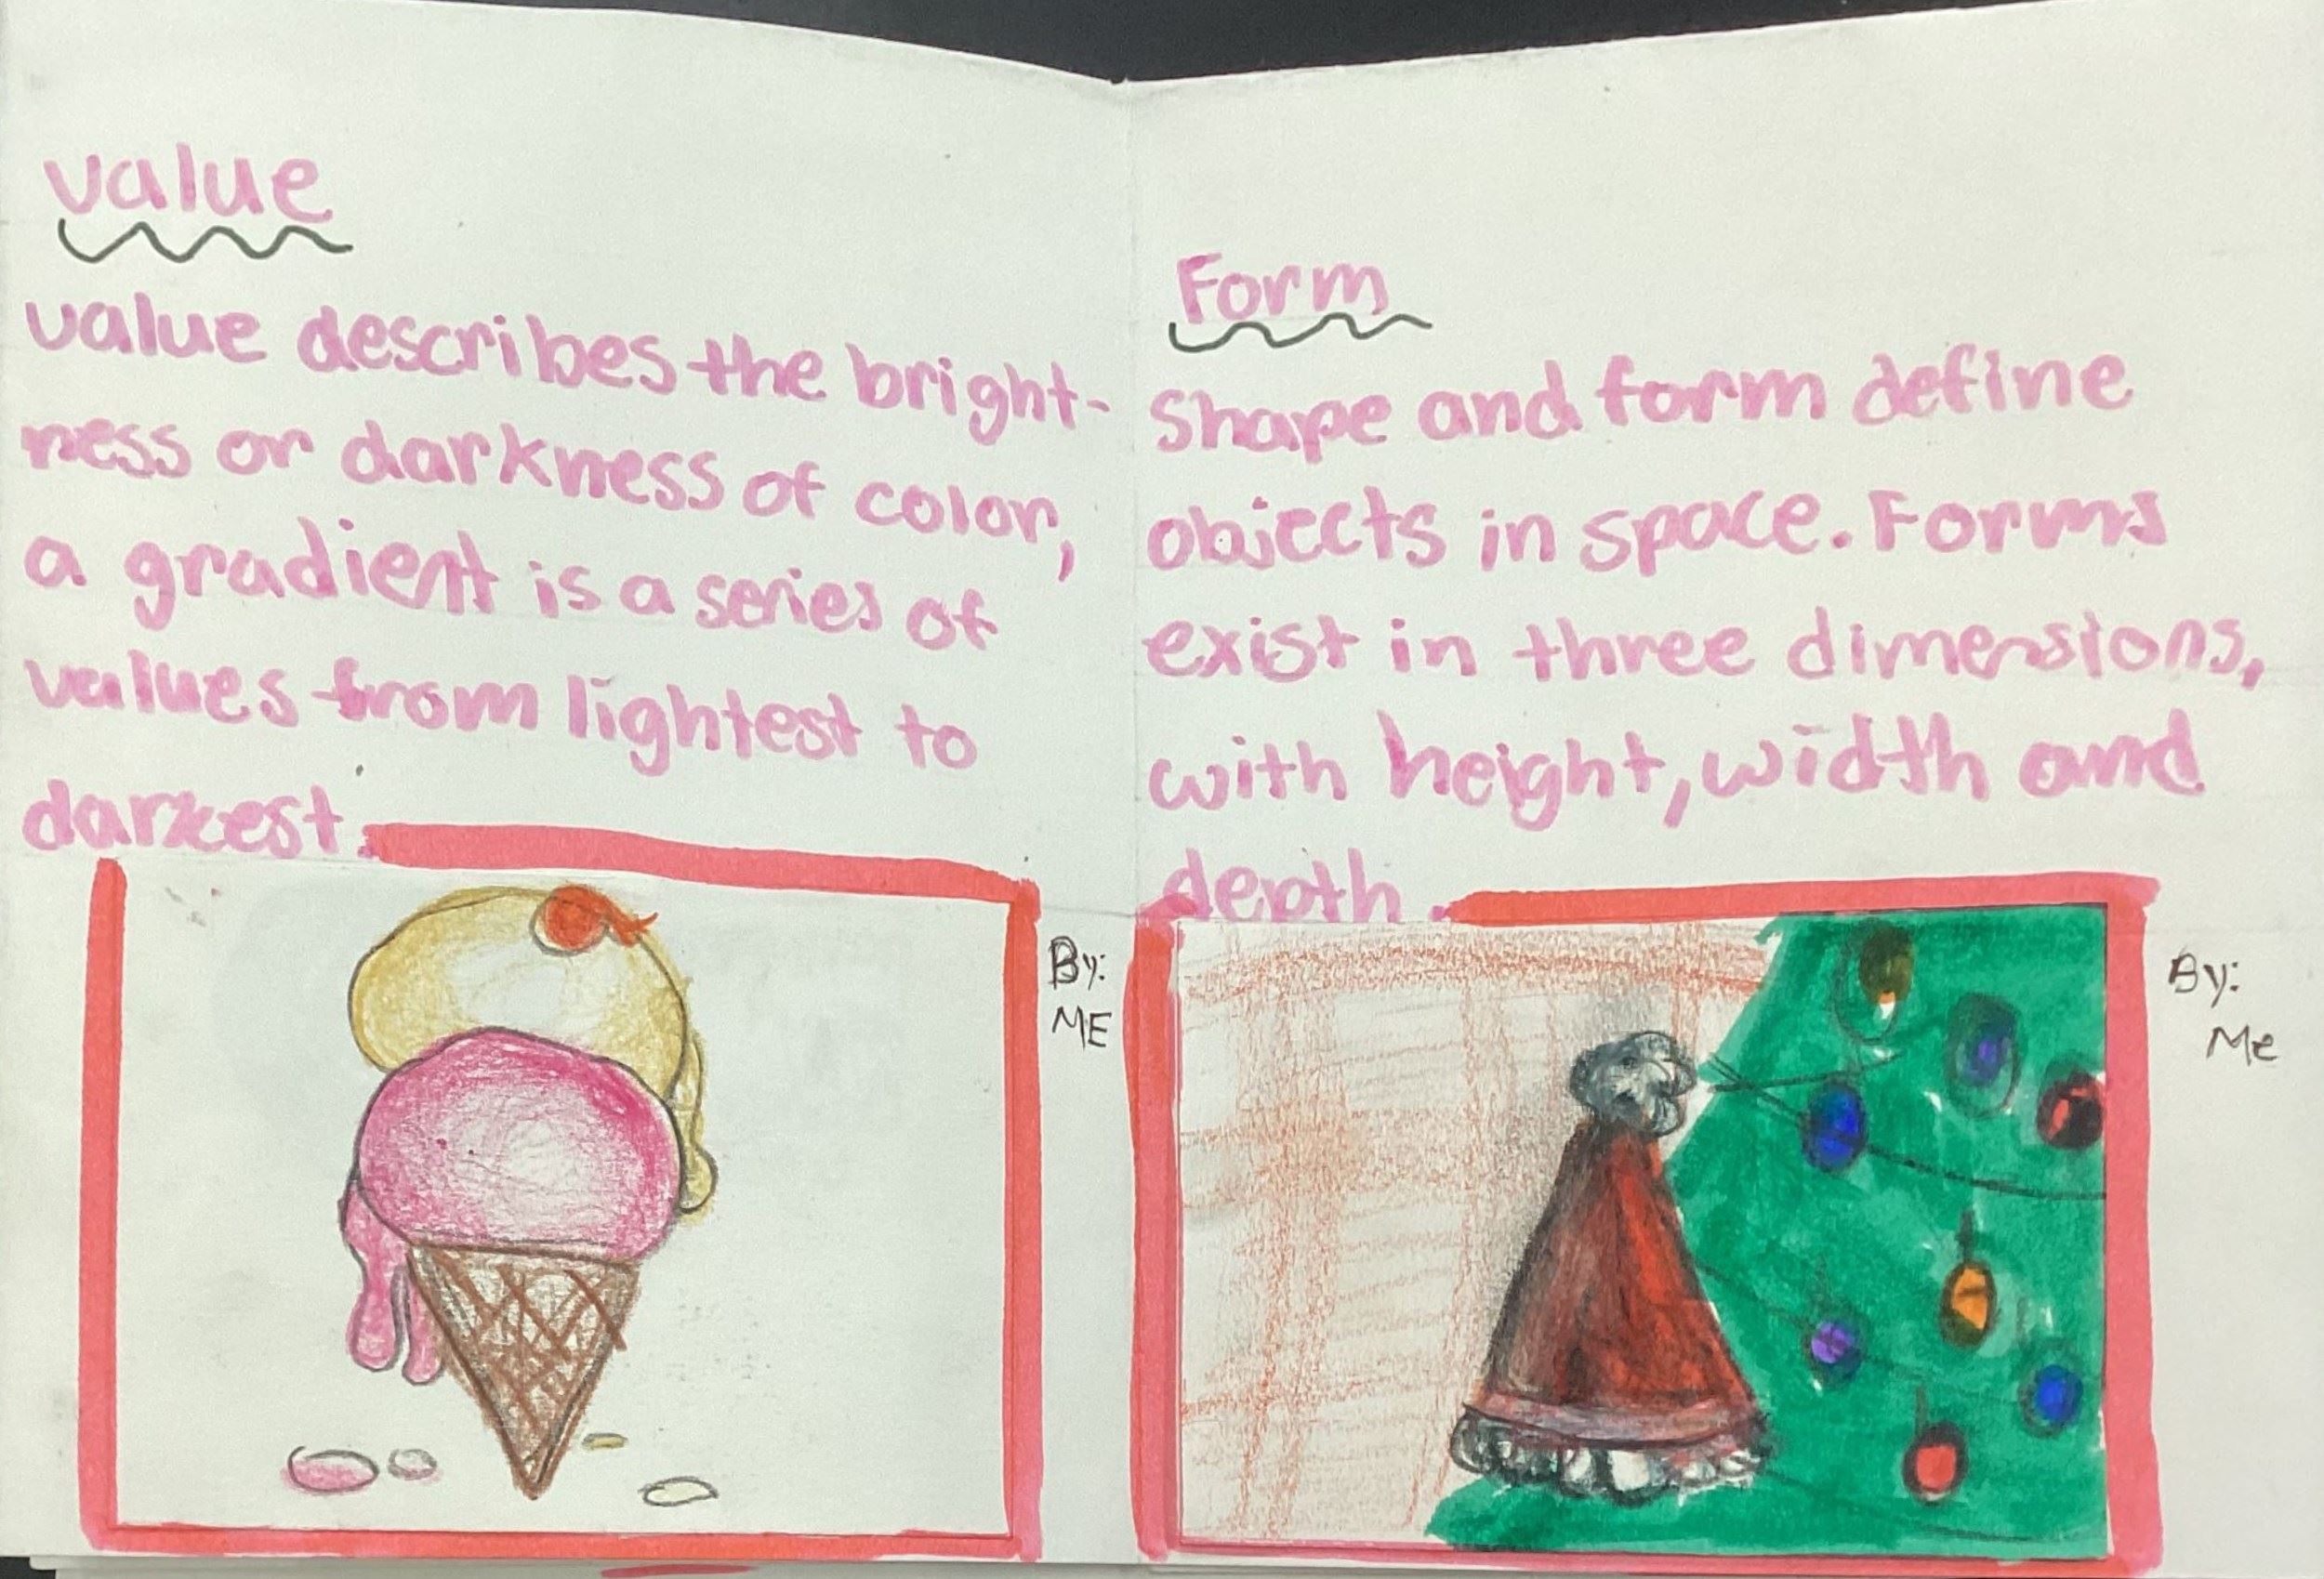 value
value describes the bright-
ness or darkness of color,
a gradient is a series of
values from lightest to
darkest.
By:
ME
Form
Shape and form define
objects in space. Forms
exist in three dimensions,
with height, width and
depth.
By:
Me